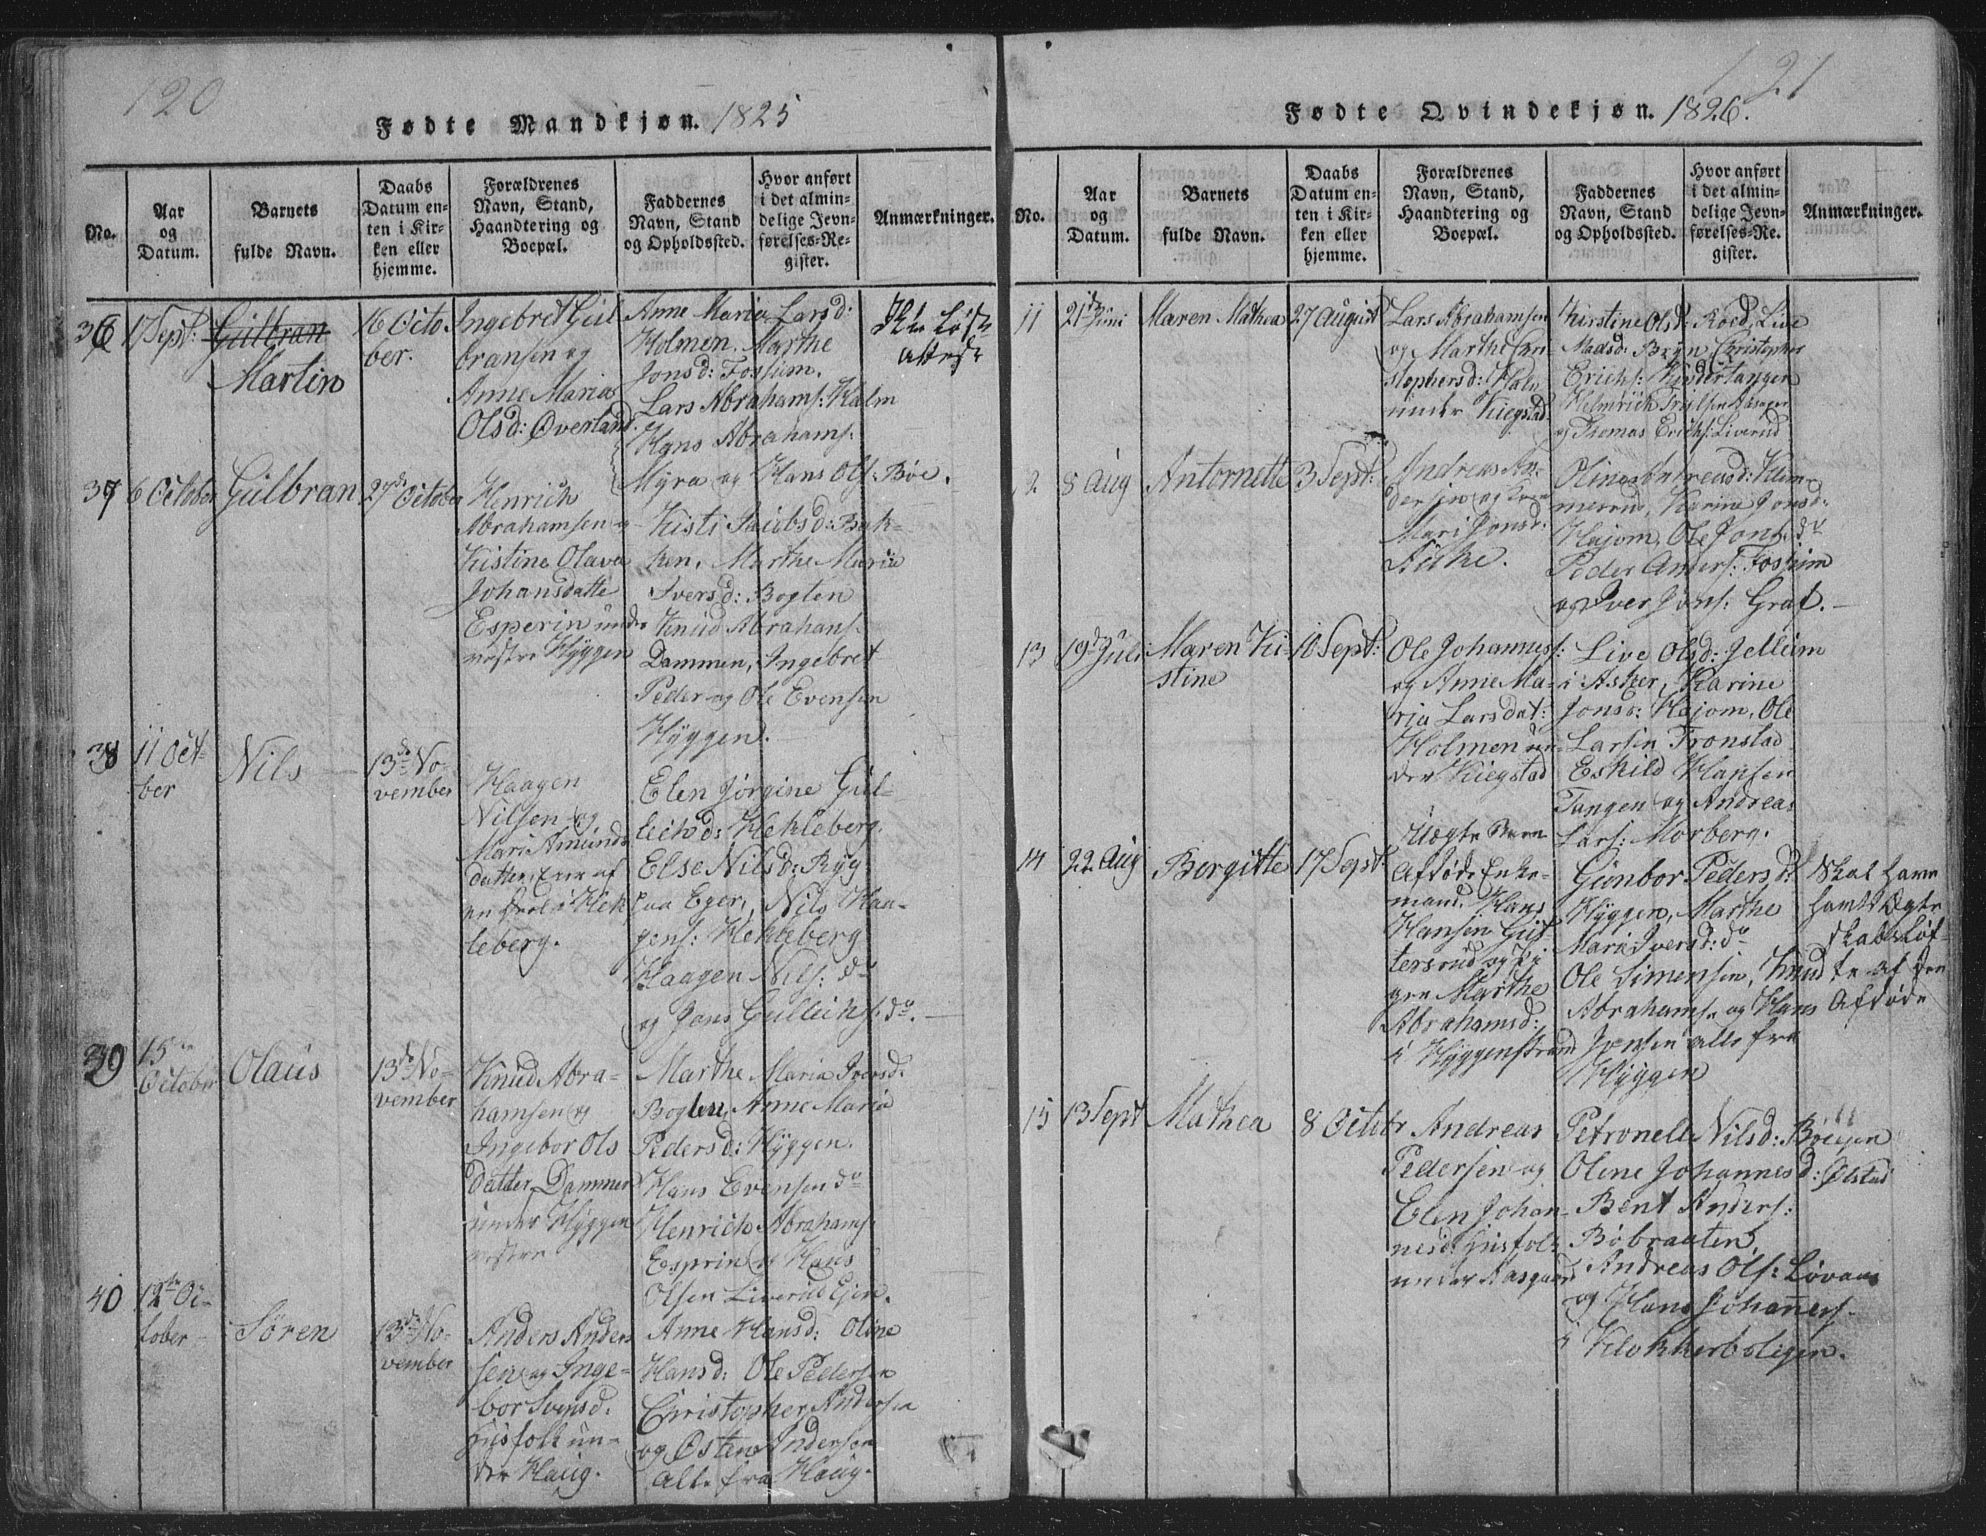 120
Fødte Mandkjøn. 1825
No.
Aar og Datum.
Barnets fulde Navn.
Daabs Datum enten i Kirken eller hjemme.
Forældrenes Navn, Stand, Haandtering og Boepæl.
Faddernes Navn, Stand og Opholdssted.
Hvor anført i det almindelige Jevnførelses-Register.
Anmærkninger.
36
17 Sept:
Gulbran
Martin
16 Octo
ber.
Ingebret Gul
bransen og
Anne Maria
Olsd: Øverland
Anne Maria Larsd:
Holmen, Marthe
Jonsd: Fossum.
Lars Abrahams: Halm
Hans Abrahams:
Myra og Hans Ols: Bøe.
attest
37
6 October
Gulbran
27de October
Henrich
Abrahamsen og
Kistine Olava
Johansdatte
Esperin under
vestre Hyggen
Kisti Jacobsd: Bak-
ken, Marthe Maria
Iversd: Boglen
Knud Abrahams:
Dammen, Ingebret
Peder og Ole Evensen
Hyggen.
38
11 Oct-
ber
Nils
13de No-
vember
Haagen
Nilsen og
Mari Amunds
datter
leberg.
Elen Jørgine Gul-
leichsd: Hekleberg.
Else Nilsd: Ryg
paa Eger, Nils Haa-
gens: Hekleberg
Haagen Nils: do
og Jons Gulleichs: do.
39
15de
October
Olaus
13de No-
vember
Knud Abra-
hamsen og
Ingebor Ols
datter Dammen
under Hyggen
vestre
Marthe Maria Iversd:
Boglen, Anne Maria
Pedersd: Hyggen.
Hans Evensen do
Henrich Abrahams:
Esprin og Hans
Olsen Liverud Ejer.
40
12te Oc-
tober
Sören
13de No-
vember
Anders Anders
sen og Inge-
bor Svensd.
Husfolk un-
der Haug.
Anne Hansd: Oline
Hansd: Ole Pedersen
Christopher Andersen
og Østen Andersen
Alle fra Haug.
121
Fødte Qvindekjøn. 1826.
No.
Aar og Datum.
Barnets fulde Navn.
Daabs Datum enten i Kirken eller hjemme.
Forældrenes Navn, Stand, Haandtering og Boepæl.
Faddernes Navn, Stand og Opholdssted.
Hvor anført i det almindelige Jevnførelses-Register.
Anmærkninger.
11
21de Juni
Maren Mathea
27 August
Lars Abrahamsen
og Marthe Chri-
stophersd: Halm
under Kiegstad.
Kirstine Olsd: Roed, Live
Madsd: Bryn, Christopher
Erichs:
og Thomas Erichs: Liverud
2
8 Aug
Antornette
3 Sept:
Andreas An-
dersen og Kone
Mari Jonsd:
Oline Andreasd: Klem-
merud, Karine Jonsd:
Hajom, Ole Jons: do
Peder Anders: Fossum
og Iver Jons: Graf.
13
19de Juli
Maren Ki-
stine
10 Sept:
Ole Johannes:
og Anne Ma-
ria Larsdat:
Holmen un-
der Kiegstad
Live Olsd: Jellum
i Asker, Karine
Jonsd: Hajom, Ole
Larsen Tronstad
Eskild Hansen
Tangen og Andreas
Lars: Morberg.
14
22 Aug
Borgitte
17 Sept
Uægte Barn
Afdøde Enke-
mand. Hans
Hansen Gut-
tersrud og Pi-
gen Marthe
Abrahamsd:
i Hyggenstrand
Gunbor Pedersd:
Hyggen, Marthe
Maria Iversd: do
Ole Simensen, Knud
Abrahams: og Hans
Jensen alle fra
Hyggen
Skal have
havt Ægte
skabs Løf-
te af den
Afdøde
15
13 Sept
Mathea
8 Octbr
Andreas
Pedersen og
Elen Johan-
nesd: Husfolk
under Aasgaard
Petronelle Nilsd: Böeijen
Oline Johannesd: Ølstad
Bent Anders:
Böbraaten
Andreas Ols: Løvaas
og Hans Johannes:
i Klokkerboligen.